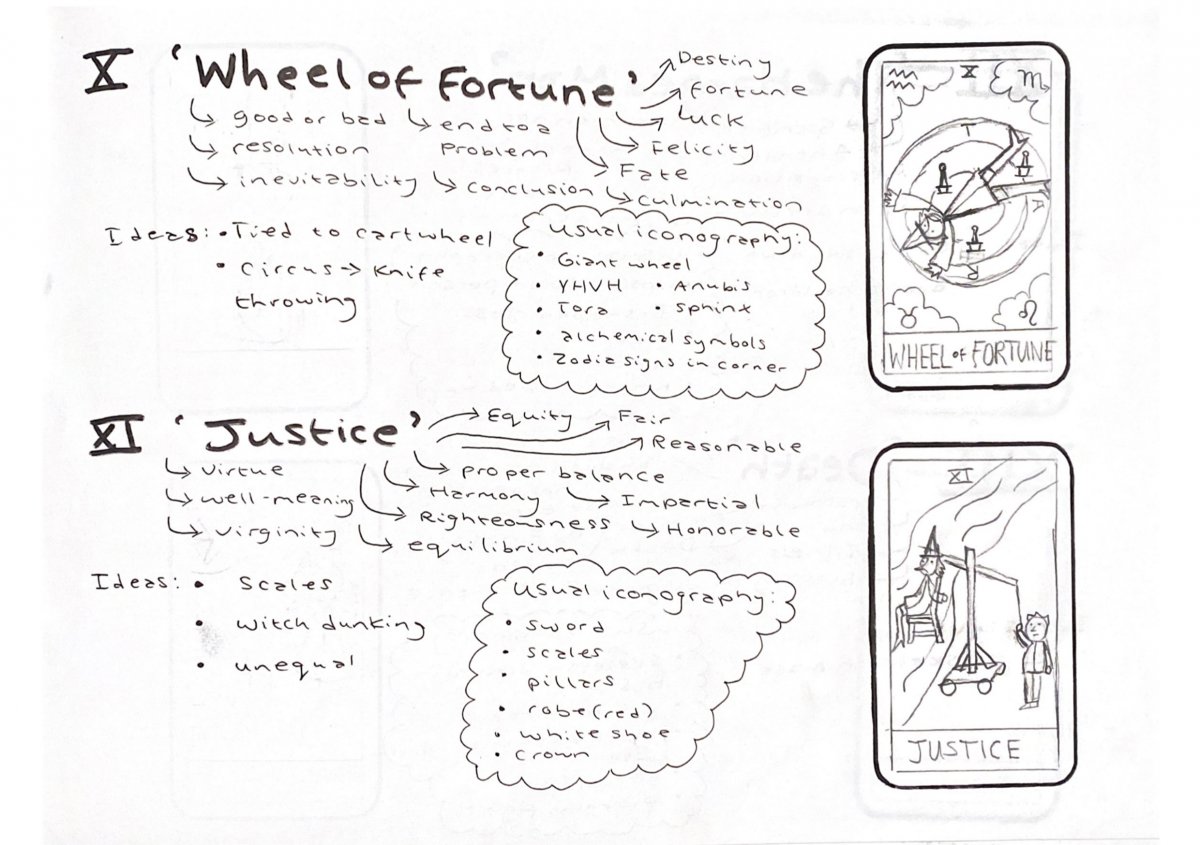 X 'Wheel of Fortune'
Destiny
Fortune
Luck
Felicity
Fate
good or bad
resolution
inevitability
end to a
problem
conclusion
culmination
Ideas: • Tied to cartwheel
• Circus → Knife
throwing
Usual iconography:
• Giant wheel
• YHVH • Anubis
• Tora • Sphinx
• alchemical symbols
• Zodia signs in corner
X
T
A
R
WHEEL of FORTUNE
XI 'Justice'
Equity
Fair
Reasonable
Virtue
well-meaning
virginity
proper balance
Harmony
Impartial
Righteousness
Honorable
equilibrium
Ideas: • Scales
• witch dunking
• unequal
Usual iconography:
• Sword
• scales
• pillars
• robe (red)
• white shoe
• crown
XI
JUSTICE